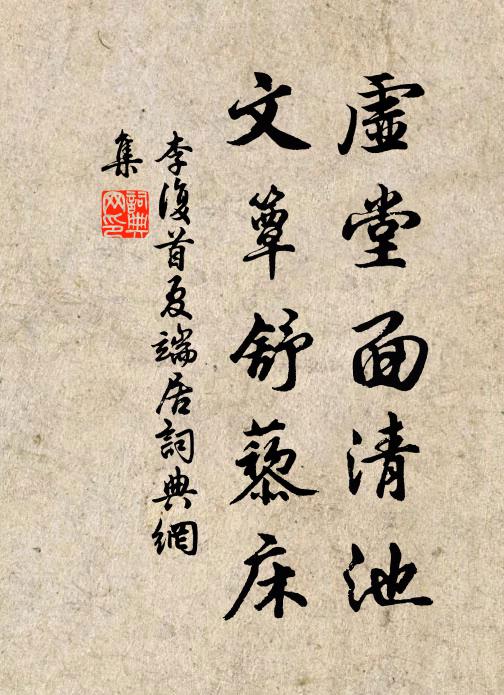 虛堂面清池
文簟舒藜床
李復首夏端居詞典網
集
詞典
网印